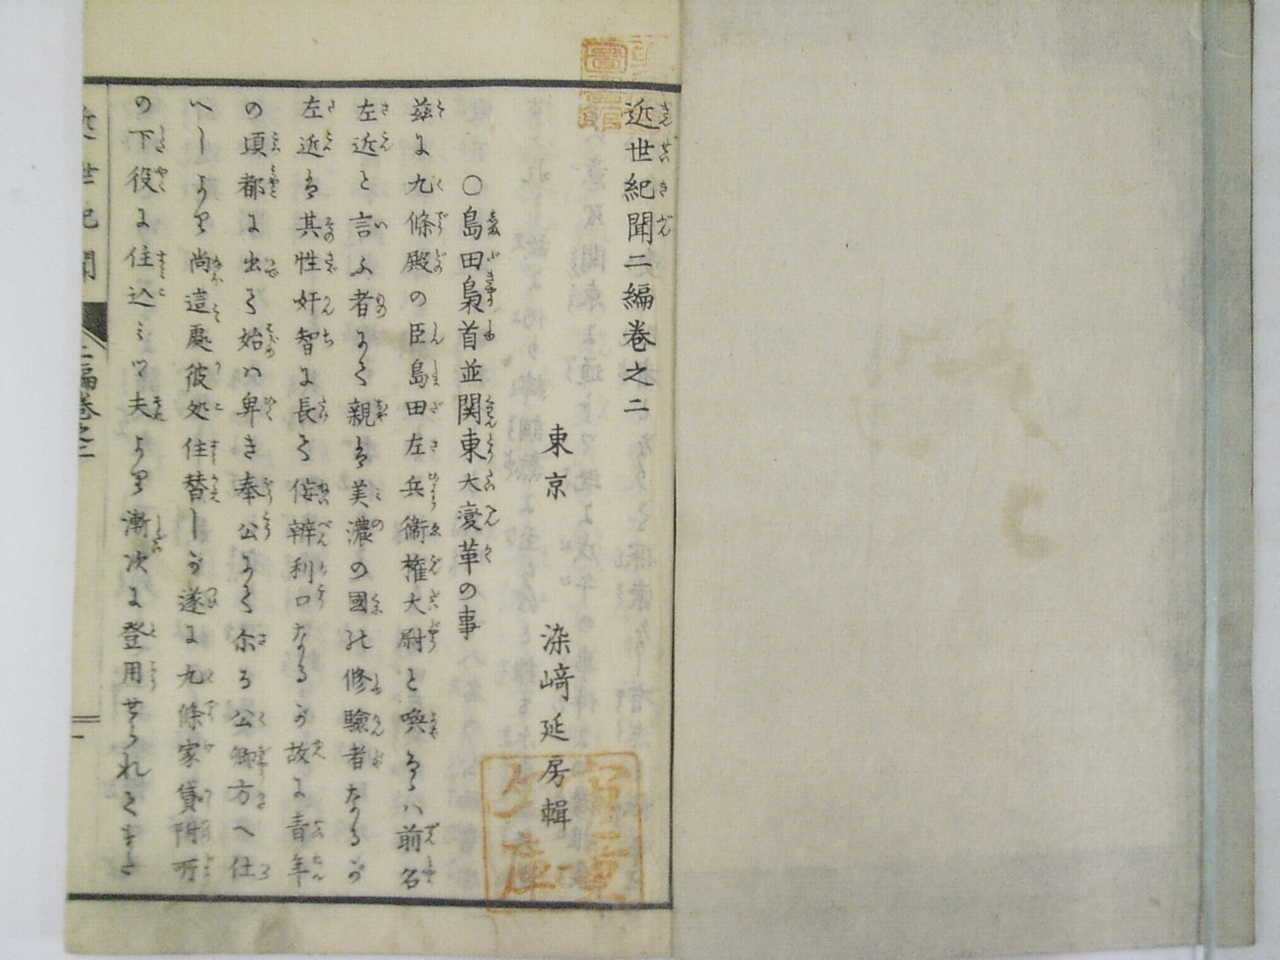 近世紀聞二編巻之二
東京 染﨑延房輯
○島田梟首並関東大変革の事
茲に九條殿の臣島田左兵衛権大尉と喚るゝハ前名
左近と言ふ者にて親は美濃の國の修驗者なるが
左近は其性奸智に長て侫辨利口なるが故に青年
の頃都に出て始ハ卑き奉公にて尓る公卿方へ仕
へしより尚這處彼処住替しが遂に九條家貸附所
の下役に住込ミつ夫より漸次に登用せられてまた
近世紀聞 二編巻之二 一